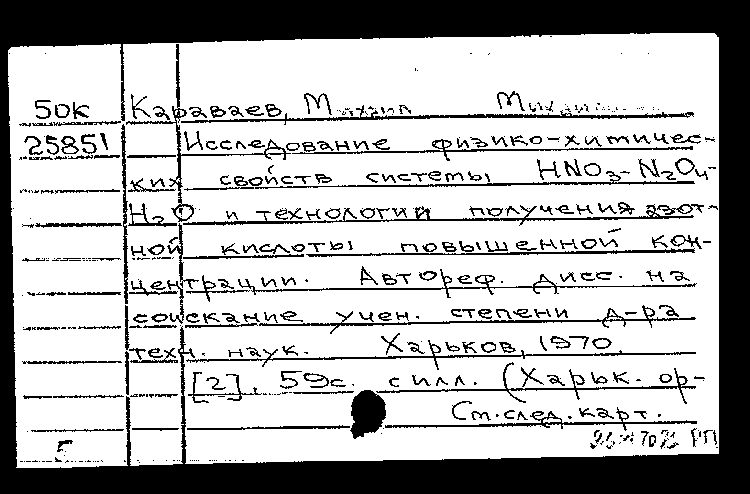 50к Караваев, Михаил
25851 Исследование физико-химичес-
ких свойств системы HNO3-N2O4-
H2O и технологии получения азот-
ной кислоты повышенной кон-
центрации. Автореф. дисс. на
соискание учен. степени д-ра
техн. наук. Харьков, 1970.
[2], 59с. с илл. (Харьк. ор-
См. след. карт.
5 РП